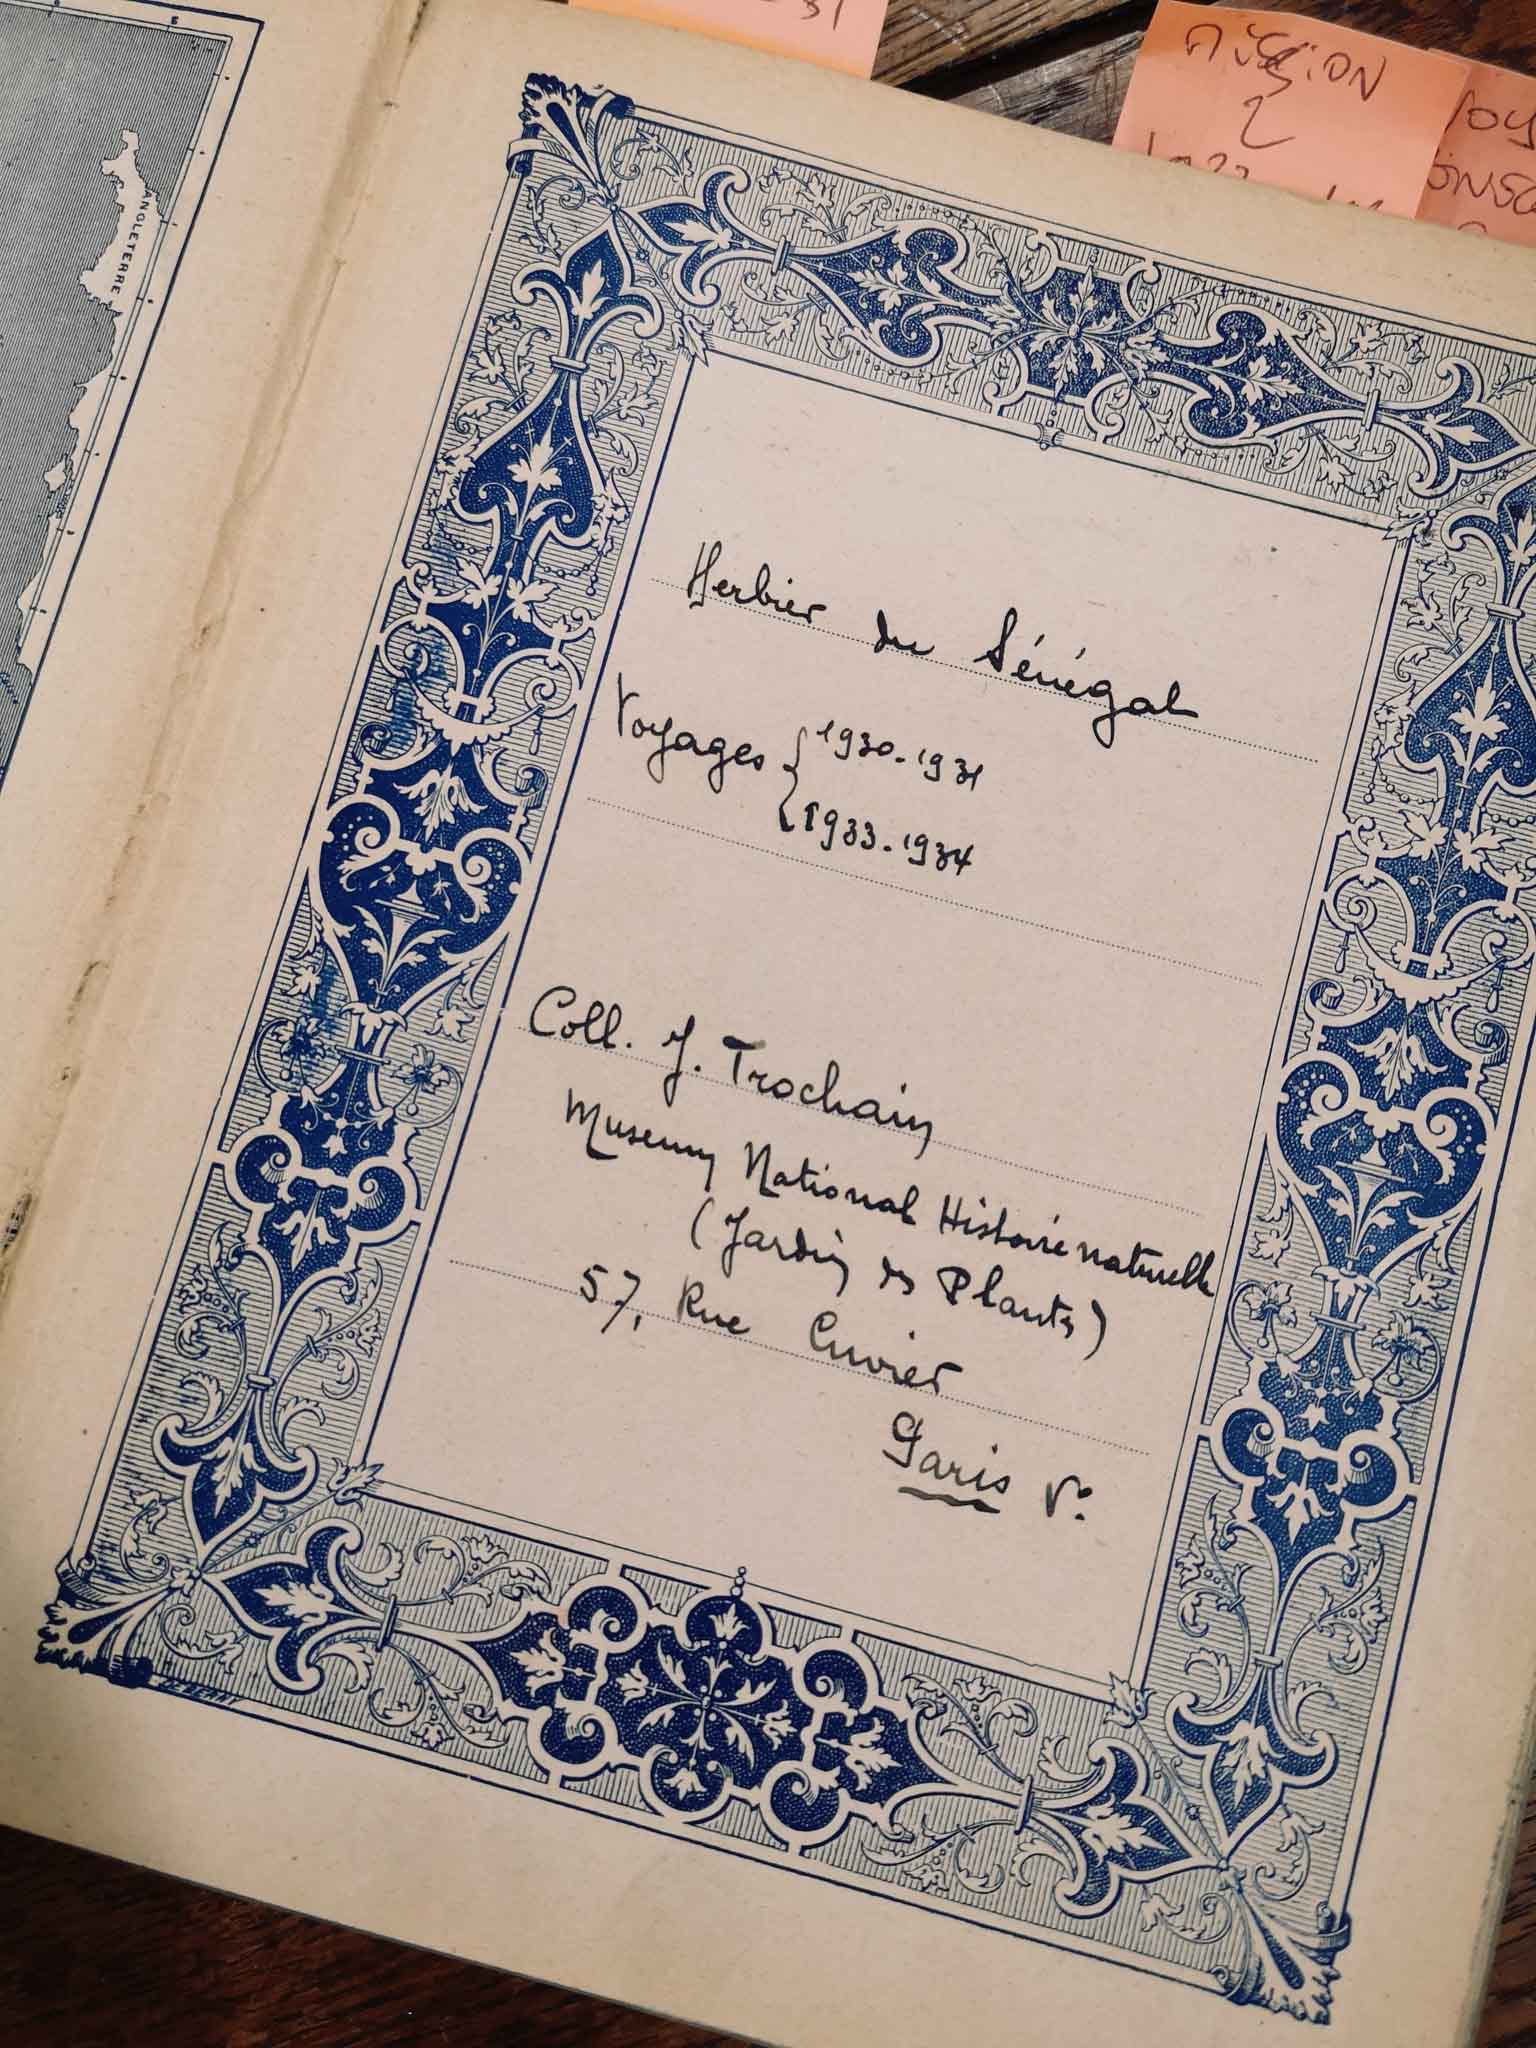 MISSION
2
ANGLETERRE
Herbier du Sénégal
Voyages { 1930-1931
1933-1934
Coll. J. Trochain
Museum National Histoire naturelle
(Jardin des Plantes)
57, Rue Cuvier
Paris Ve.